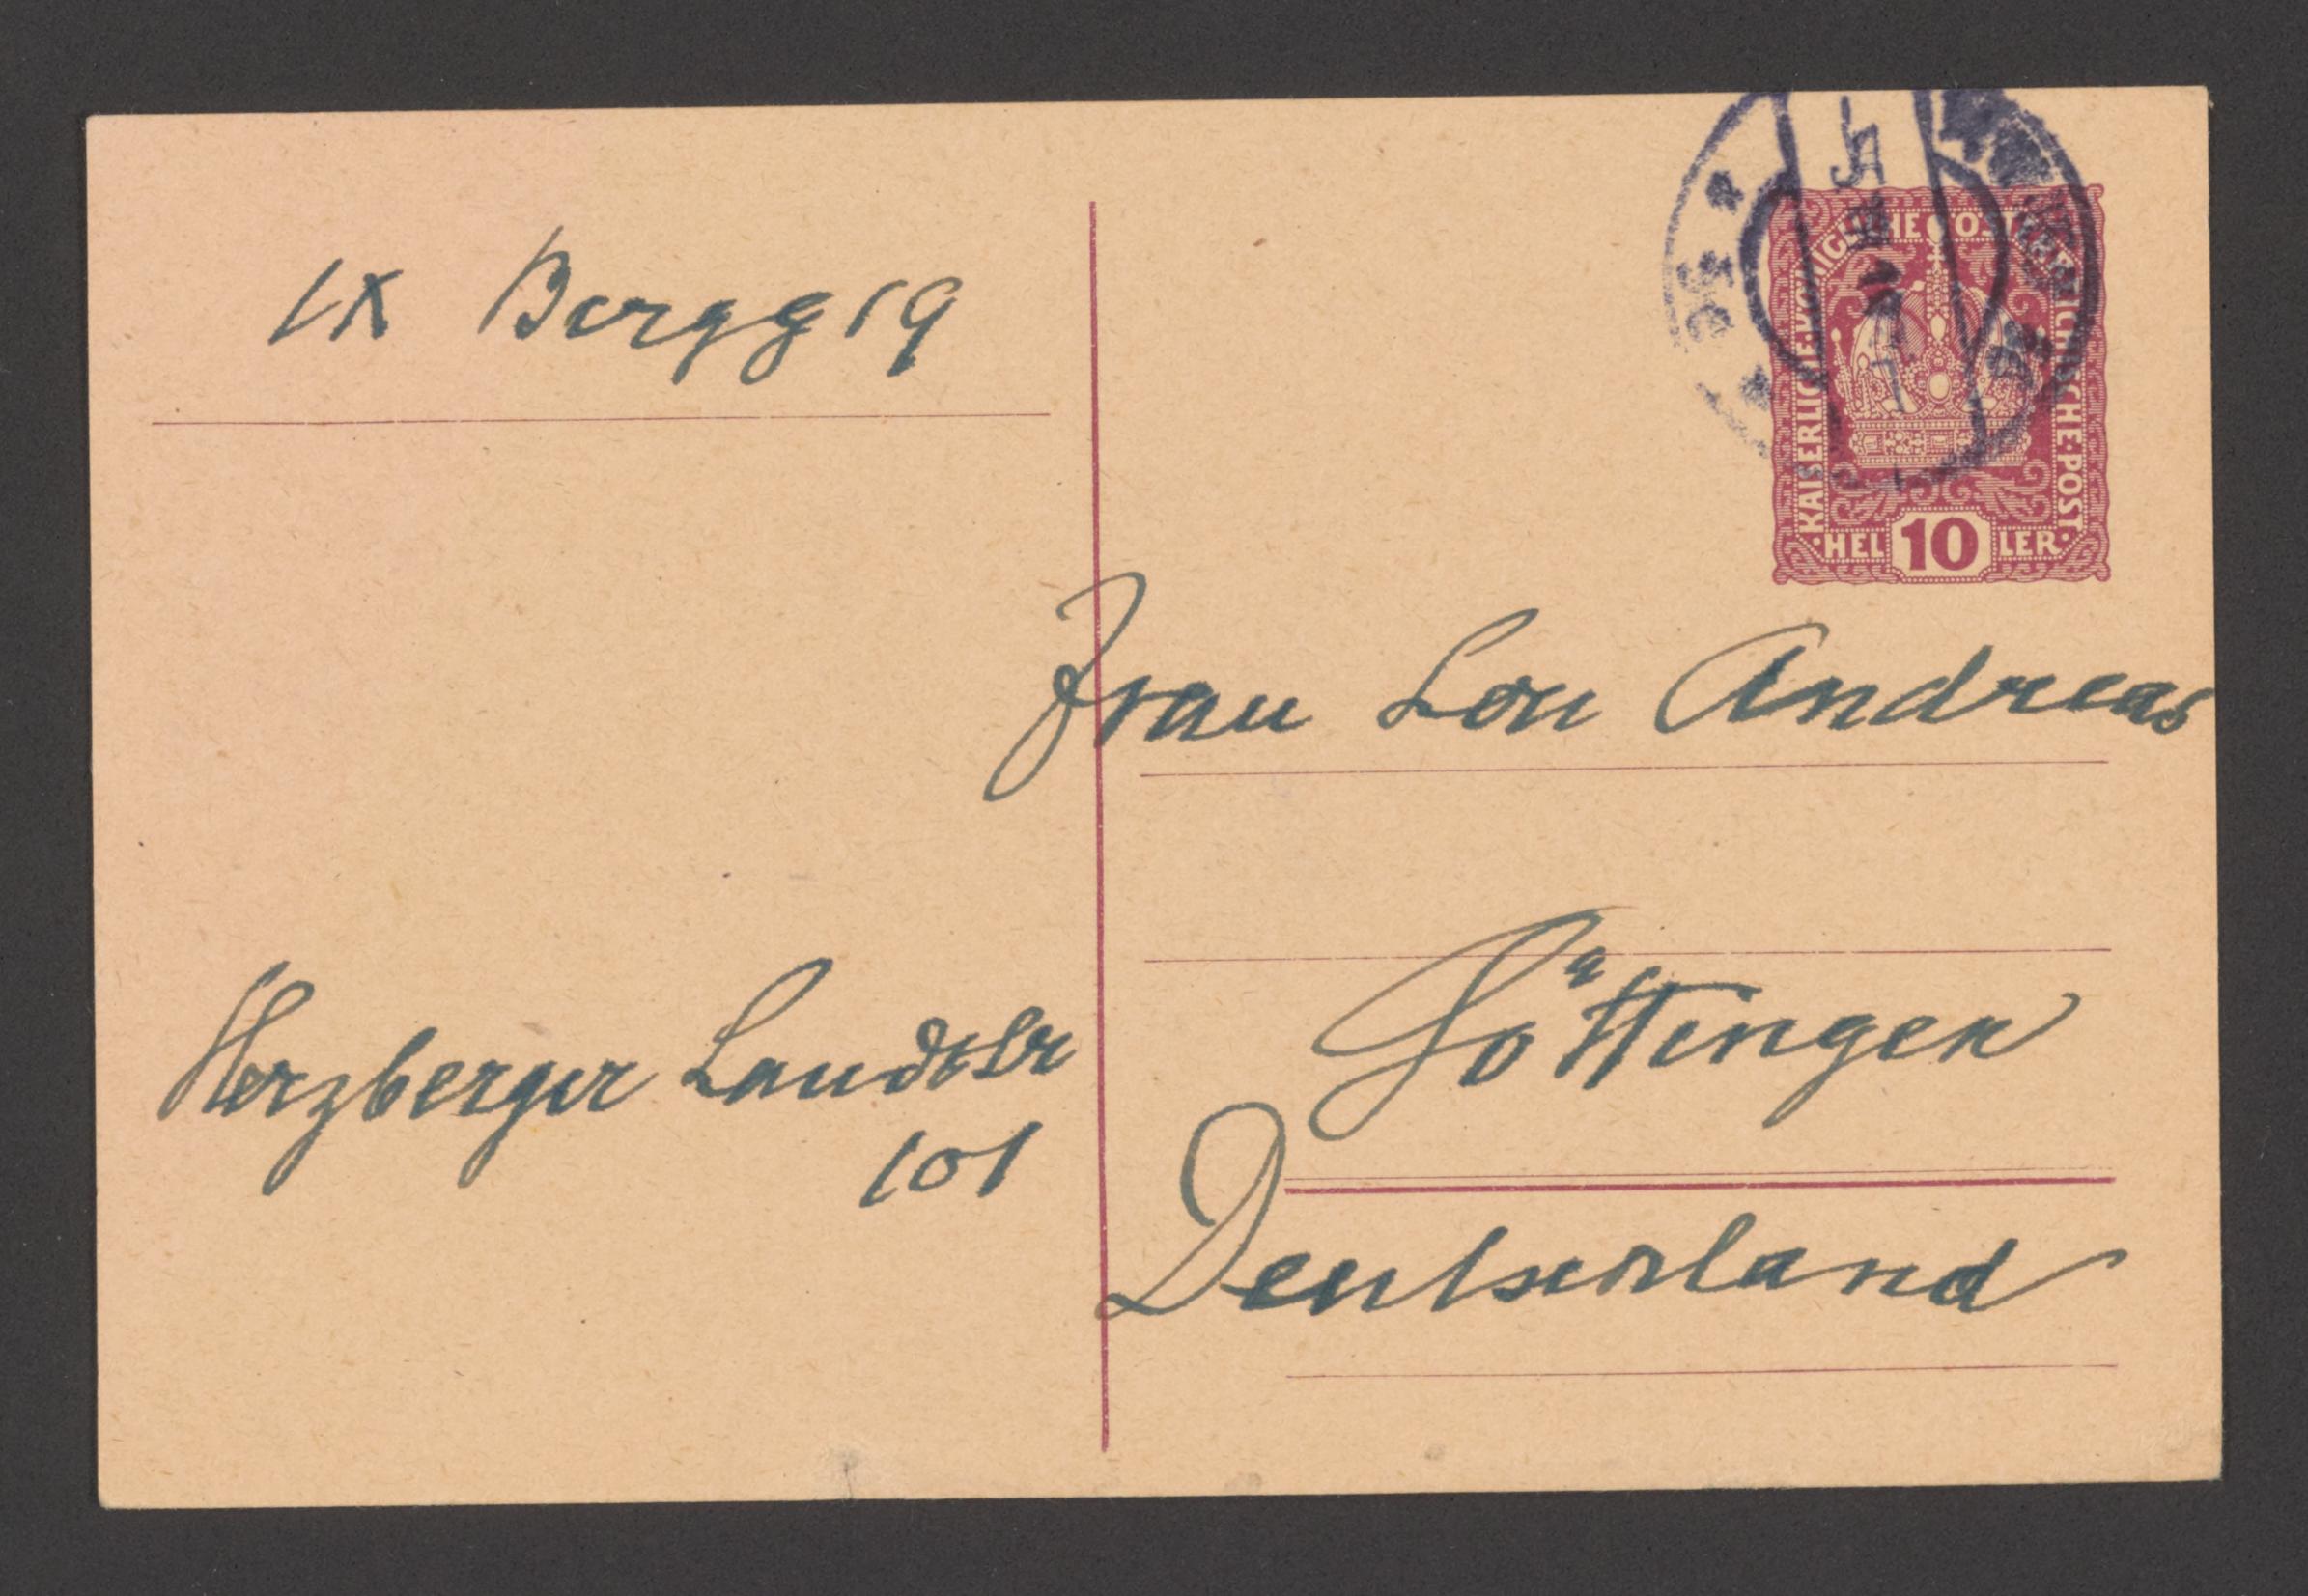 IX Bergg 19
KAISERLICHE KÖNIGLICHE POST
ÖSTERREICHISCHE POST
HEL 10 LER
Frau Lou Andreas
Göttingen
Herzberger Landstr
101
Deutschland